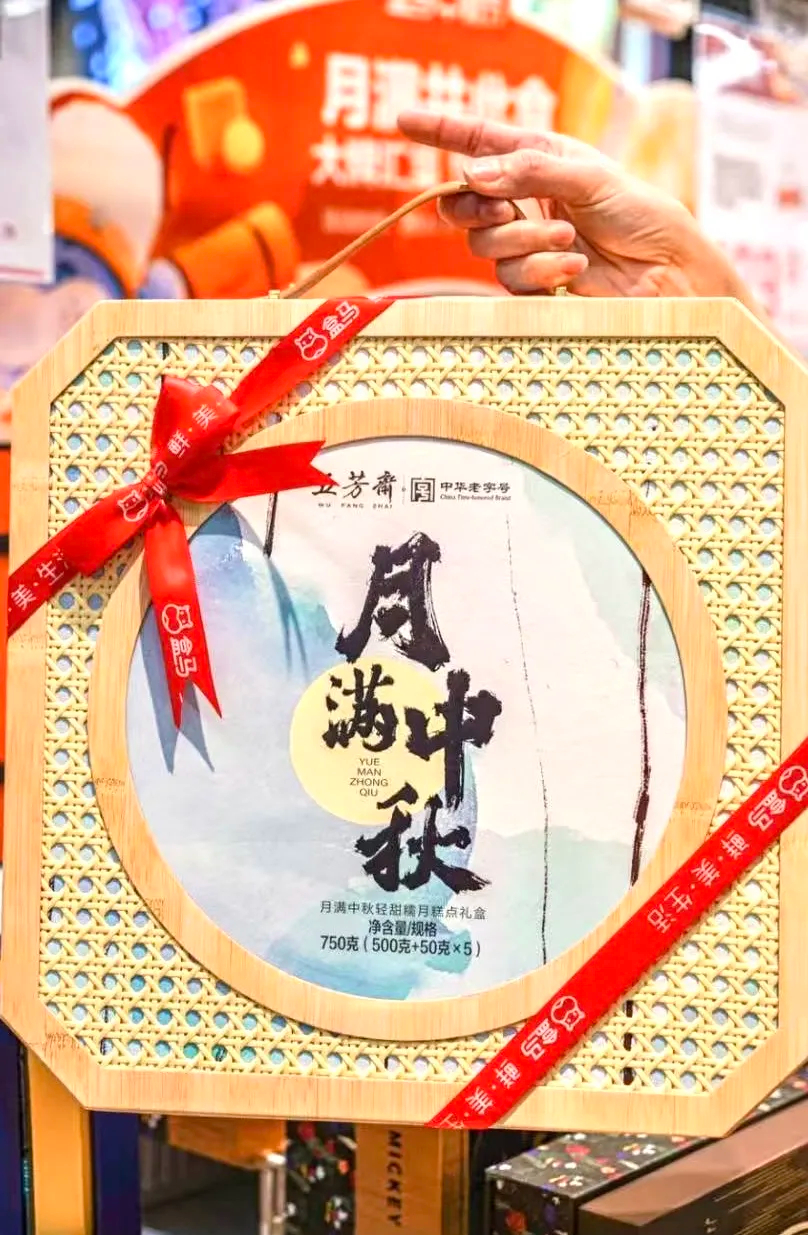 月满共此食
大牌汇
盒马
鲜·美
美·生活
盒马
五芳斋
WU FANG ZHAI
中华老字号
China Time-honored Brand
月
满中
秋
YUE
MAN
ZHONG
QIU
月满中秋轻甜糯月糕点礼盒
净含量/规格
750克（500克+50克×5）
盒马 鲜·美·生活
盒马 鲜·美
MICKEY